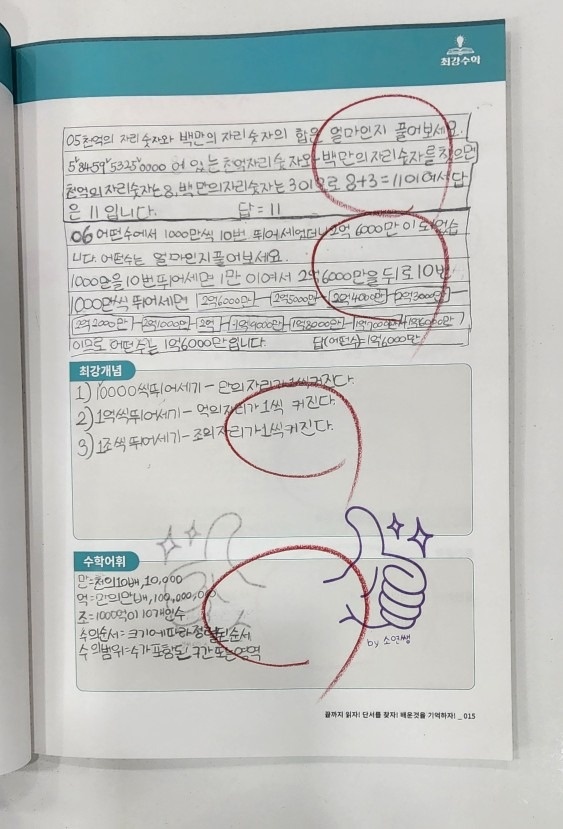 최강수학
05 천억의 자리 숫자와 백만의 자리숫자의 합은 얼마인지 풀어보세요.
5조8459억5325만0000 에 있는 천억자리숫자와 백만의자리숫자를 찾으면
천억의자리숫자는 8, 백만의자리숫자는 3이므로 8+3=11이여서 답
은 11 입니다. 답=11
06 어떤수에서 1000만씩 10번 뛰어세었더니 2억 6000만 이 되었습
니다. 어떤수는 얼마인지풀어보세요.
1000만을 10번뛰어세면 1만 이여서 2억6000만을 뒤로 10번
1000만씩 뛰어세면 2억6000만 - 2억5000만 - 2억4000만 - 2억3000만
2억2000만 - 2억1000만 - 2억 - 1억9000만 - 1억8000만 - 1억7000만 - 1억6000만
이므로 어떤수는 1억6000만입니다. 답(어떤수)=1억6000만
최강개념
1) 10000씩뛰어세기 - 만의자리가 1씩커진다.
2) 1억씩뛰어세기 - 억의자리가 1씩 커진다.
3) 1조씩 뛰어세기 - 조의자리가 1씩커진다.
수학어휘
만=천의10배, 10,000
억=만의만배, 100,000,000
조=1000억이 10개인수
수의순서=크기에따라정렬된순서
수의범위=수가포함된 구간 또는영역
by 소연쌤
끝까지 읽자! 단서를 찾자! 배운것을 기억하자! _ 015